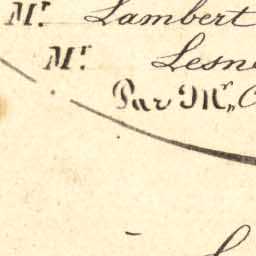 Mr. Lambert
Mr. Lesn
Par Mr.